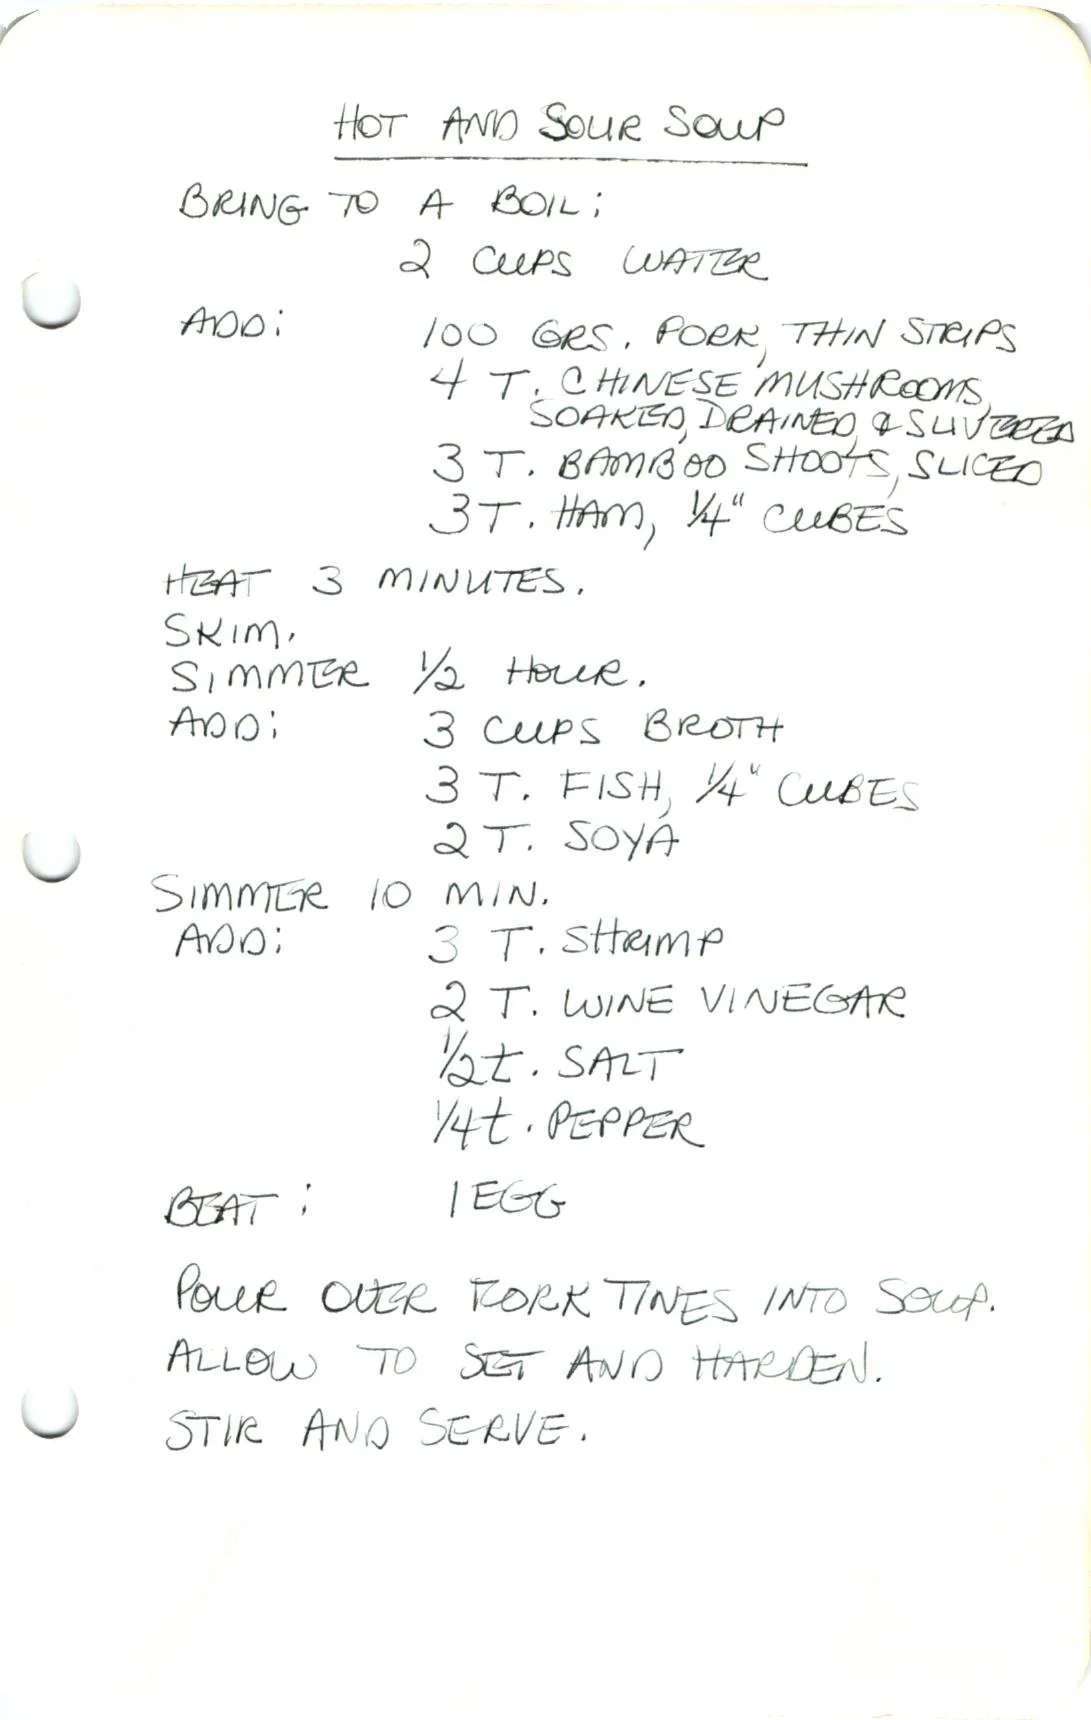 HOT AND SOUR SOUP
BRING TO A BOIL:
2 CUPS WATER
ADD: 100 GRS. PORK, THIN STRIPS
4 T. CHINESE MUSHROOMS,
SOAKED, DRAINED, & SLIVERED
3 T. BAMBOO SHOOTS, SLICED
3 T. HAM, 1/4" CUBES
HEAT 3 MINUTES.
SKIM.
SIMMER 1/2 HOUR.
ADD: 3 CUPS BROTH
3 T. FISH, 1/4" CUBES
2 T. SOYA
SIMMER 10 MIN.
ADD: 3 T. SHRIMP
2 T. WINE VINEGAR
1/2 t. SALT
1/4 t. PEPPER
BEAT: 1 EGG
POUR OVER FORK TINES INTO SOUP.
ALLOW TO SET AND HARDEN.
STIR AND SERVE.